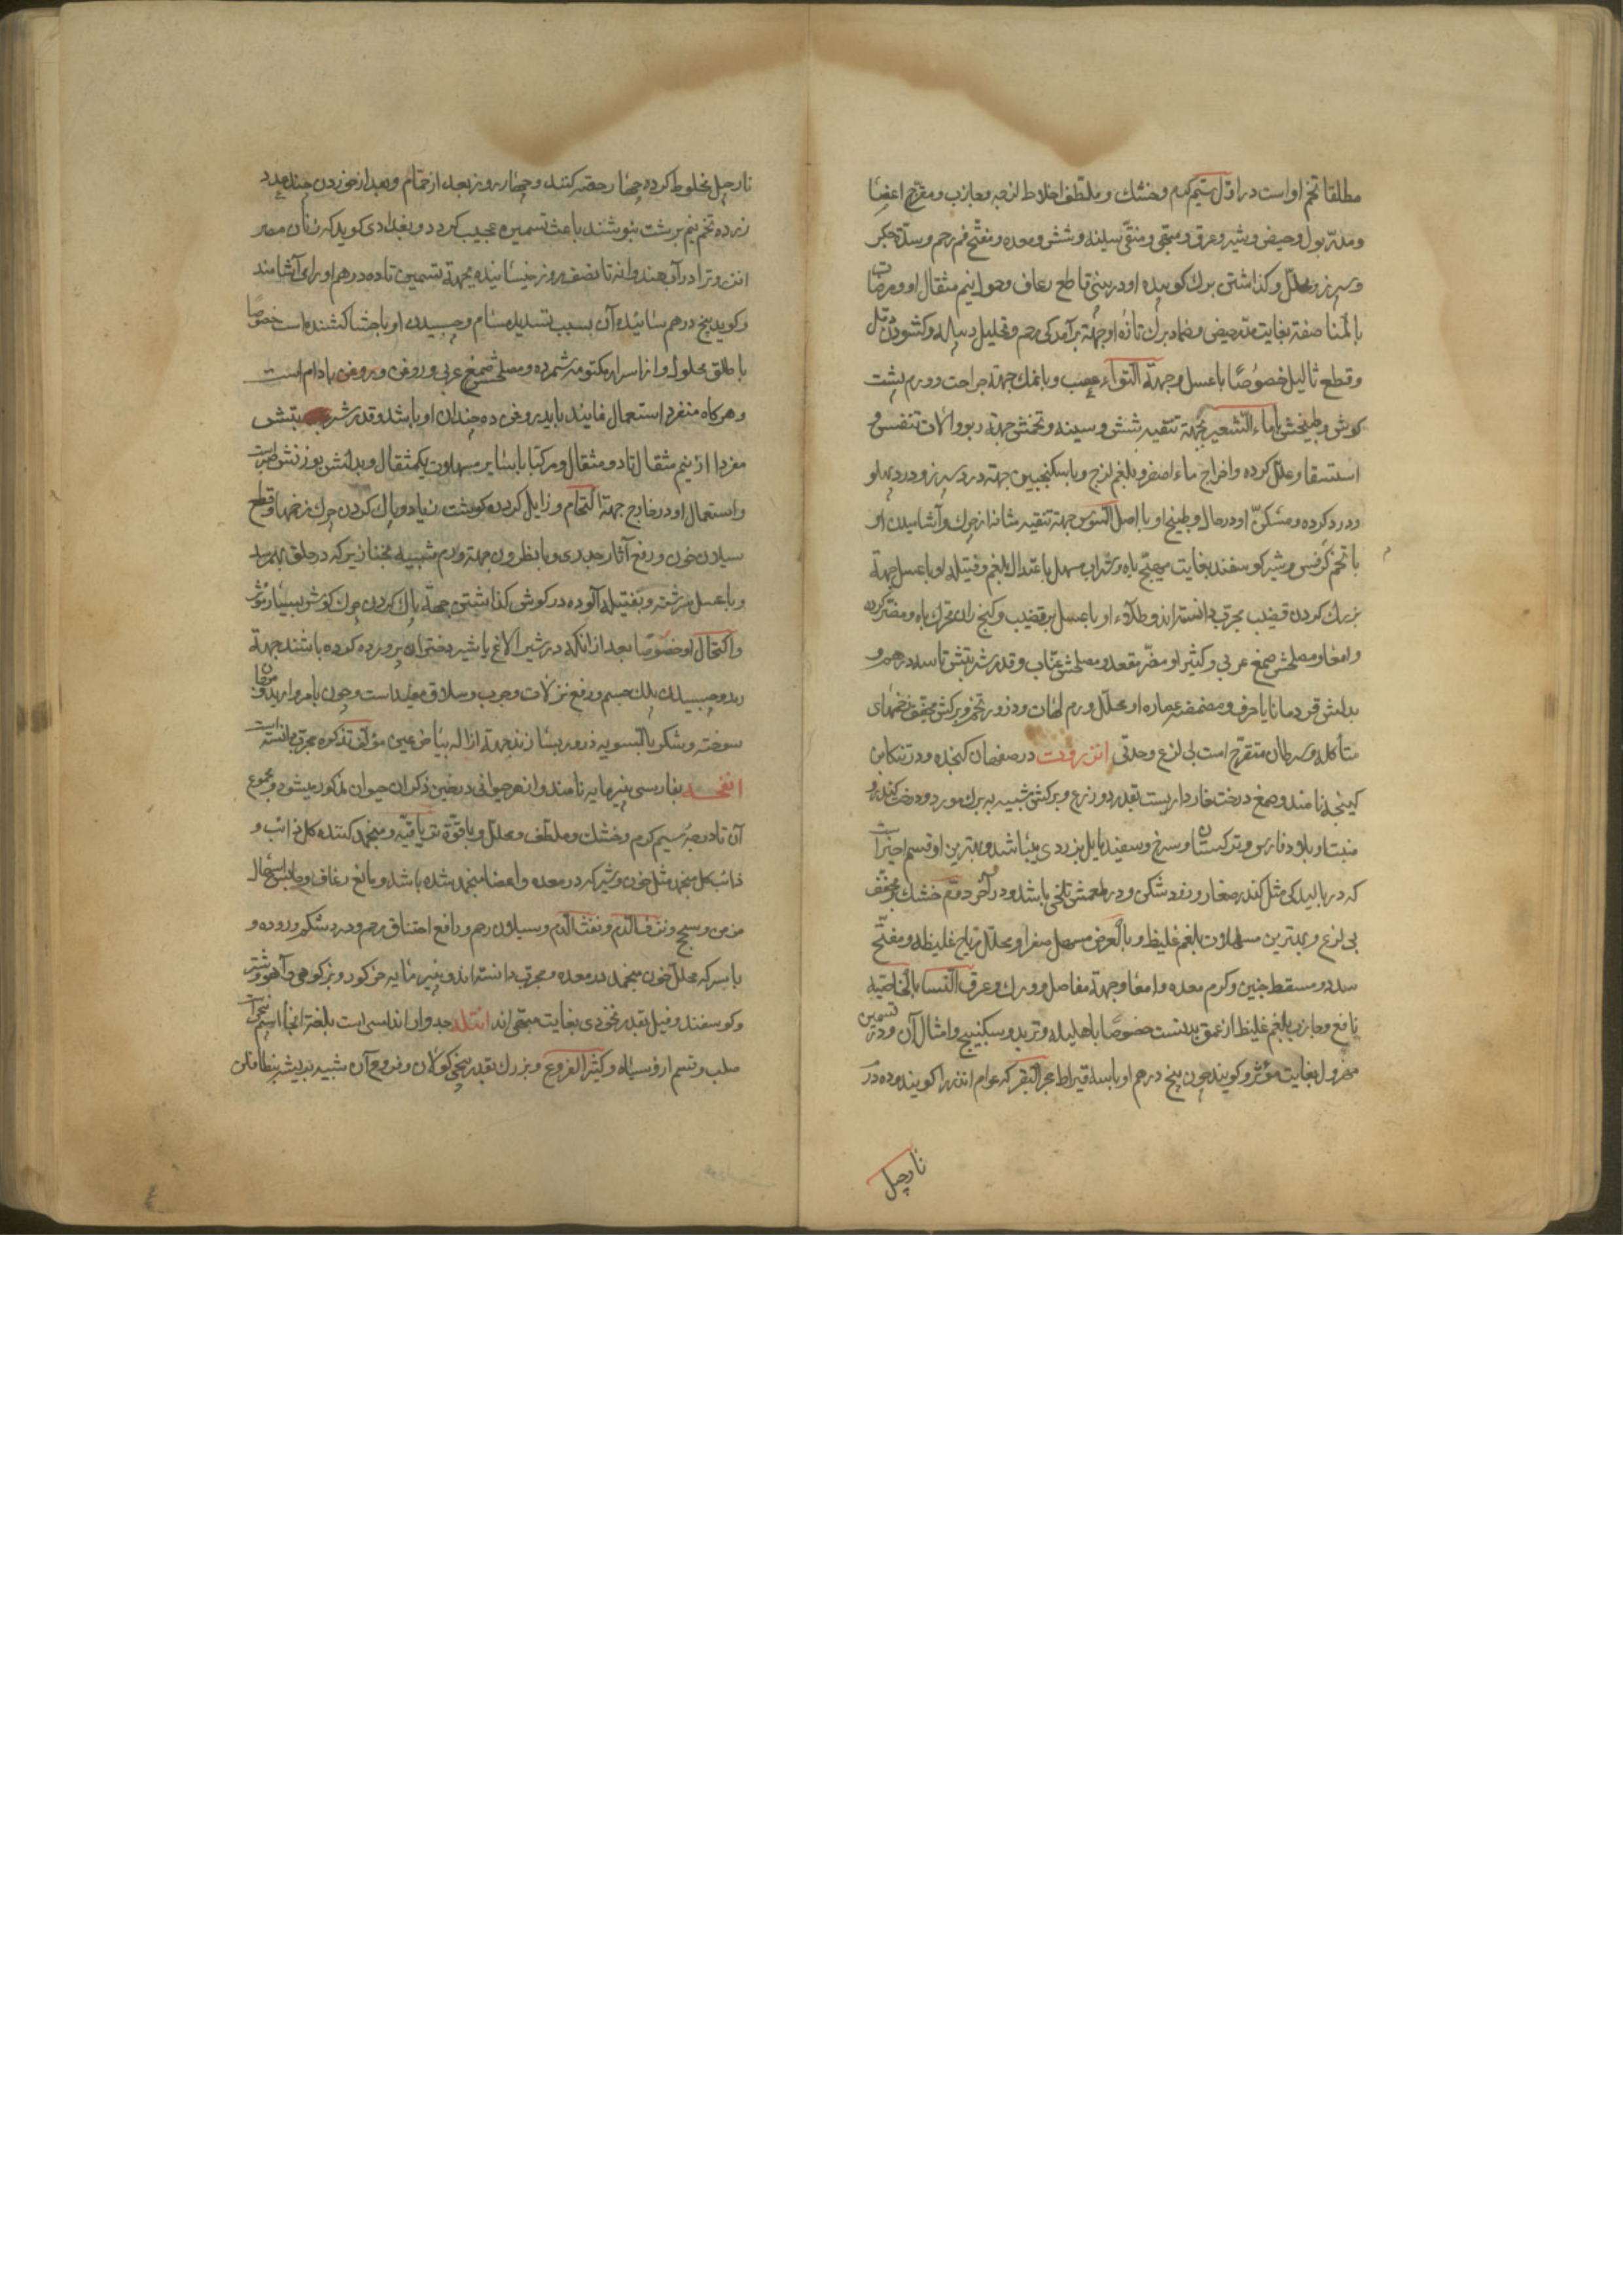 مطلقا تخم او است در اول سیم گرم و خشک و ملطف اخلاط لزجه و جاذب و مقرح اعضا
و مدر بول و حیض و شیر و عرق و مقی و منقی سینه و شش و معده و مفتح فم رحم و سده جگر
و سپرز و محلل و گذاشتن برک کوبیده او در بینی قاطع رعاف و حمول نیم مثقال او و مر صاف
بالمناصفه بغایت مدر حیض و ضماد برک تازه او جهة برآمدگی رحم و تحلیل دبیله و گشودن دمل
و قطع ثالیل خصوصا با عسل و جهة التواء عصب و با نمک جهة جراحت و ورم پشت
کوش و طبیخش با ماء الشعیر جهة تنقیه شش و سینه و تخمش جهة ربو و آلات تنفس و
استسقا و علل گرده و اخراج ماء اصفر و بلغم لزج و با سکنجبین جهة درد سپرز و درد پهلو
و درد گرده و مسکن او در حال و طبیخ او با اصل السوس جهة تنقیه مثانه از چرک و آشامیدن او
با تخم کرفس و شیر گوسفند بغایت مهیج باه و شراب مسهل باعتدال بلغم و فتیله او با عسل جهة
بزرک کردن قضیب مجرب دانسته‌اند و طلاء او با عسل بر قضیب و کنج ران محرک باه و مضر گرده
و امعا و مصلحش صمغ عربی و کثیرا و مضر مقعد و مصلحش عناب و قدر شربتش تا سه درهم و
بدلش قردمانا یا حرف و مضمضه عصاره او محلل ورم لهات و ذرور تخم و برگش مجفف زخمهای
متأکله و سرطان متقرح است بی لزع و حدتی انزروت در صفهان کنجده و در تنکابن
کینجده نامند و صمغ درخت خارداریست بقدر دو زرع و برگش شبیه به برک مورد و درخت کندر و
منبت او بلاد فارس و ترکستان و سرخ و سفید مایل بزردی میباشد و بهترین او قسم اخیر است
که در بالیدگی مثل کندر صغار و زود شکن و در طعمش تلخی باشد و در آخر دوم گرم خشک و مجفف
بی لزع و بهترین مسهلات بلغم غلیظ و بالعرض مسهل صفرا و محلل ریاح غلیظه و مفتح
سدد و مسقط جنین و کرم معده و امعا و جهة مفاصل و ورک و عرق النسا بالخاصیه
نافع و جاذب بلغم غلیظ از عمق بدنست خصوصا با هلیله و تربد و سکبینج و امثال آن و در تسمین
مهزول بغایت مؤثر و گویند چون پنج درهم او با سه قیراط حجر البقر که عوام اندرزا گویند و ده درم
نارجیل
نارجیل مخلوط کرده چهار حصه کنند و چهار روز بعد از حمام و بعد از خوردن چند عدد
زرده تخم نیم برشت بنوشند باعث تسمین عجیب گردد و بغدادی گوید که زنان مصر
انزروت را در آب هندوانه تا نصف روز خیسانیده بجهة تسمین تا ده درهم او را می‌آشامند
و گوید پنج درهم سائیده آن بسبب تسدید مسام و چسبیدن او باحشا کشنده است خصوصا
با طلق محلول و از اسرار مکتومه شمرده و مصلحش صمغ عربی و روغن و روغن بادام است
و هرگاه منفرد استعمال نمایند باید روغن ده چندان او باشد و قدر شربتش
مفردا از نیم مثقال تا دو مثقال و مرکبا با سایر مسهلات یکمثقال و بدلش بوزنش صبر است
و استعمال او در خارج جهة التحام و زایل کردن گوشت زیاد و پاک کردن چرک زخمها و قطع
سیلان خون و رفع آثار جدری و با نطرون جهة ورم شبیه بخنازیر که در حلق بهم رسد
و با عسل سرشته و بفتیله آلوده در گوش گذاشتن جهة پاک کردن چرک گوش بسیار مؤثر
و اکتحال او خصوصا بعد از آنکه در شیر الاغ یا شیر دختران پرورده کرده باشند جهة
رمد و چسبیدن پلک چشم و رفع نزلات و جرب و سلاق مفید است و چون با مروارید و مرجان
سوخته و شکر بالسویه ذرور بسازند جهة ازاله بیاض عین مؤلف تذکره مجرب دانسته است
انفحه بفارسی پنیر مایه نامند و از هر حیوانی در ضمن ذکر آن حیوان مذکور میشود و مجموع
آن تا دوم سیم گرم و خشک و ملطف و محلل و با قوه تریاقیه و منجمد کننده کل ذائب و
ذائب کل منجمد مثل خون و شیر که در معده و اعضا منجمد شده باشد و مانع رعاف و حابس اسهال
مزمن و سحج و نزف الدم و نفث الدم و سیلان رحم و رافع اختناق رحم و درد شکم و روده و
با سرکه محلل خون منجمد در معده و مجرب دانسته‌اند و پنیر مایه خرگوش و بز کوهی و آهو و شتر
و گوسفند و فیل بقدر نخودی بغایت مبهی‌اند انتله جدوار اندلسی است بلغت آنجا اسم نجبر است
صلب و قسم او سیاه و کثیر الفروع و بزرک بقدر بیخ کولان و فروع آن شبیه بریشه بنطافلن